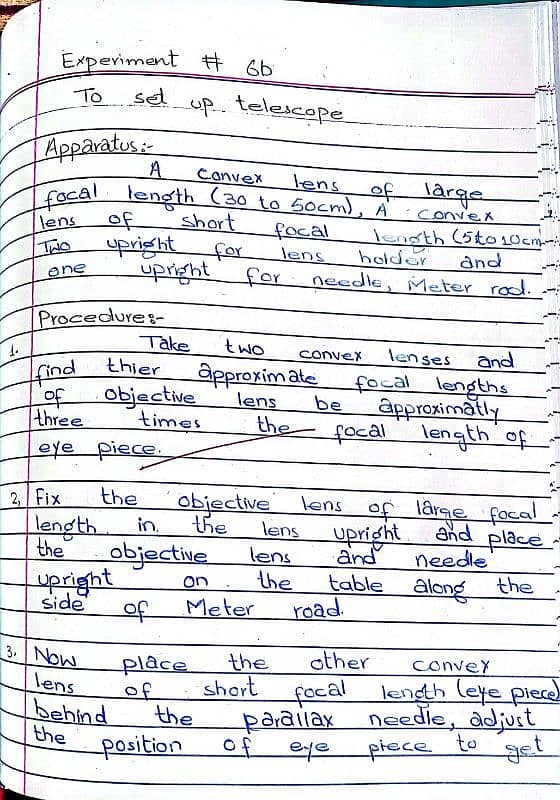 Experiment # 6b
To set up telescope
Apparatus:-
A convex lens of large
focal length (30 to 50cm), A convex
lens of short focal length (5to10cm
Two upright for lens holder and
one upright for needle, Meter rod.
Procedure:-
1. Take two convex lenses and
find thier approximate focal lengths
of objective lens be approximatly
three times the focal length of
eye piece.
2, Fix the objective lens of large focal
length in the lens upright and place
the objective lens and needle
upright on the table along the
side of Meter road.
3. Now place the other convex
lens of short focal length (eye piece)
behind the parallax needle, adjust
the position of eye piece to get